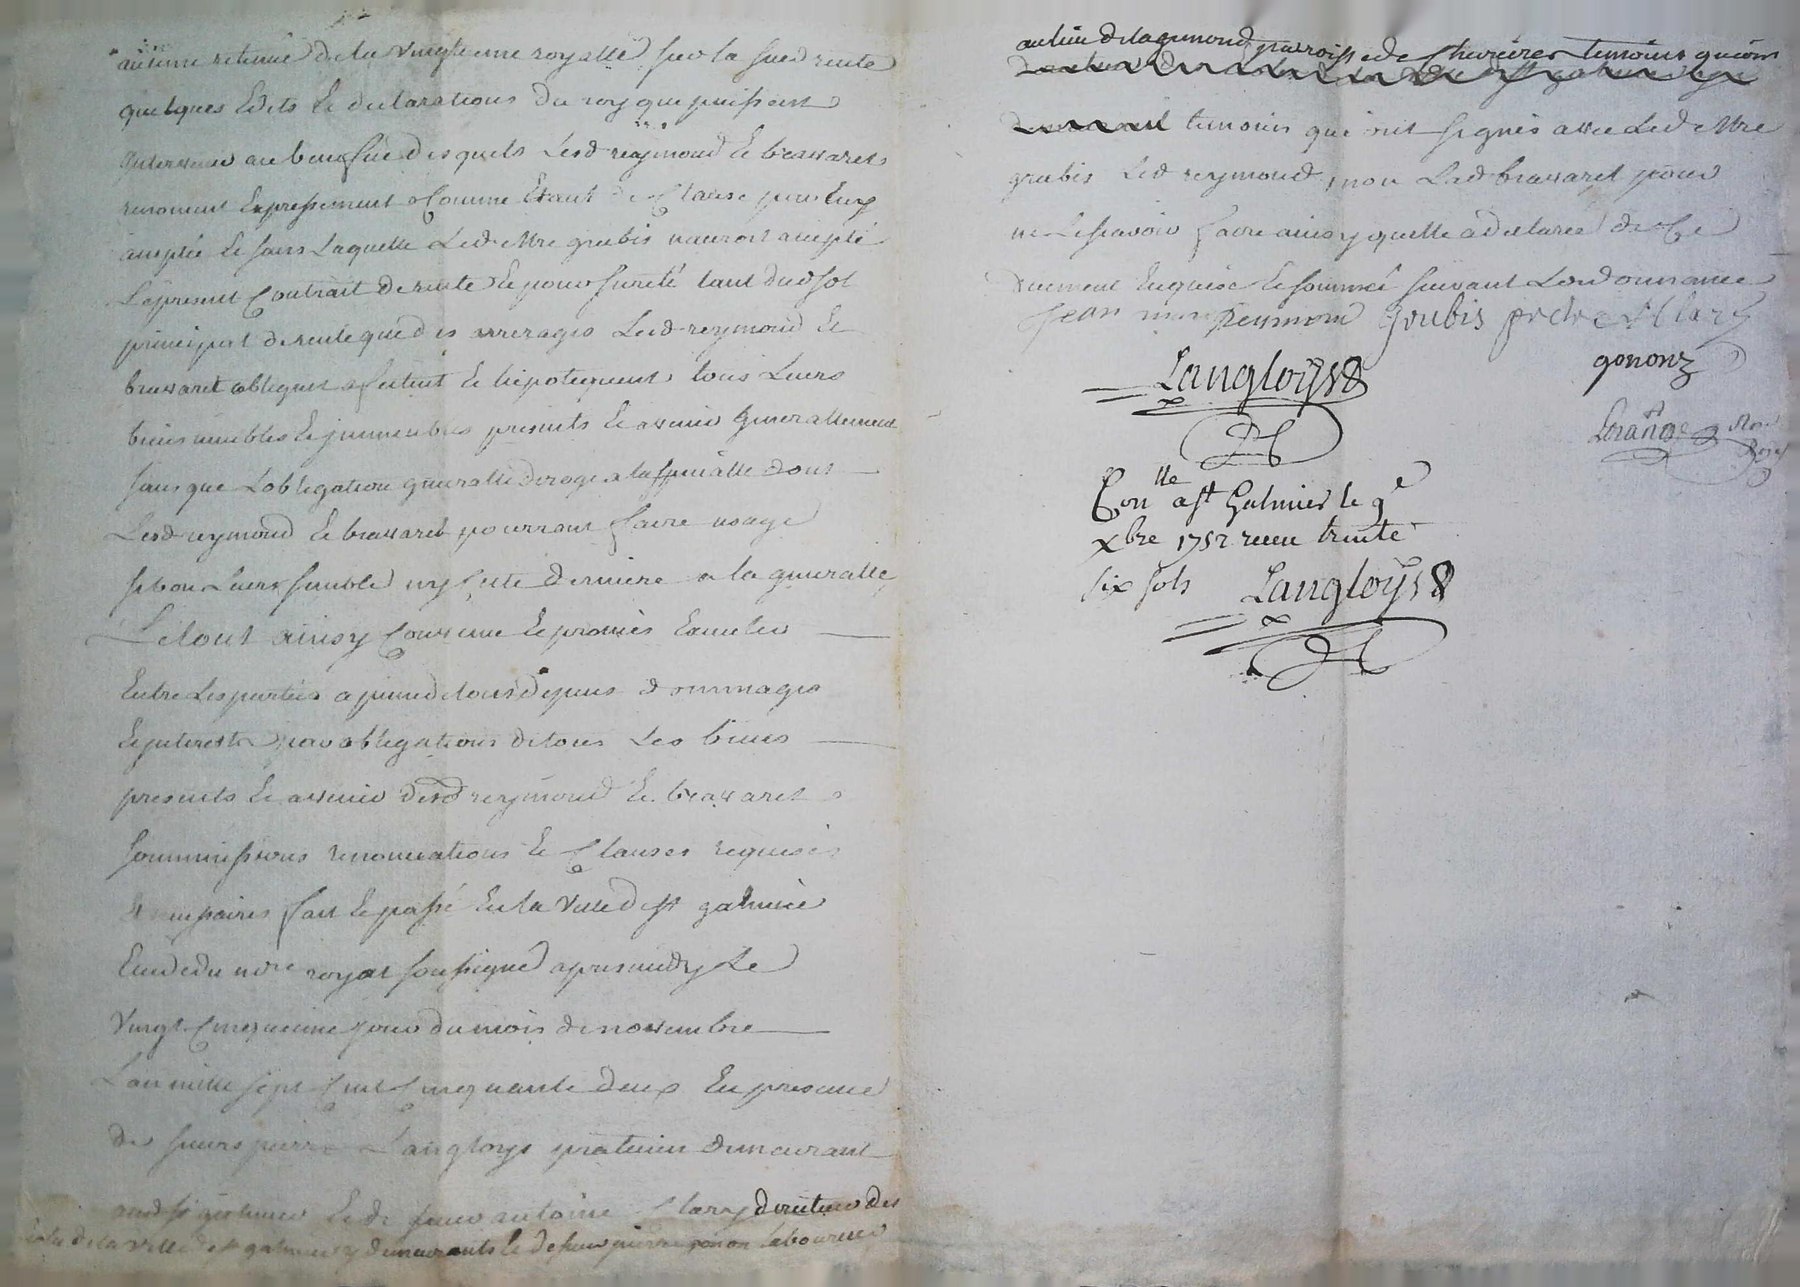 aucune retenue de la vingtieme royalle sur la sus d rente
quelques Edits & declarations du roy que puissent
intervenir au benefice desquels Lesd reymond & brassaret
renoncent Expressement Comme Etant de Clause par Eux
aceptée & sans Laquelle Led Mre grubis nauroit acepté
Le present Contrait de rente & pour sureté tant dud sol
principal de rente que des arrerages Lesd reymond &
brassaret obligent affectent & hipotequent tous Leurs
biens meubles & jmmeubles presents & avenir generallement
sans que Lobligation generalle deroge a la specialle dont
Lesd reymond & brassaret pourront faire usage
si bon Leurs semble ny cette derniere a la generalle
Le tout ainsy Convenu & promis
Entre Les parties a peine de tous depens dommages
& interests par obligations de tous Les biens
presents & avenir desd reymond & brassaret
soummissions renonciations & Clauses requises
necessaires fait & passé En la Ville de st galmier
Etude du nore royal soussigné apres midy Le
Vingt Cinquieme jour du mois de novembre
Lan mille sept Cent Cinquante deux En presence
de sieurs pierre Langloys praticien demeurant
aud st galmier & de sieur antoine Clary directeur des
de la Ville de st galmier y demeurants & de sieur pierre gonon laboureur
au lieu de lagimond parroisse de Chevrieres temoins qui ont
temoins qui ont signés avec Led Mre
grubis Led reymond, non Lad brassaret pour
ne Le scavoir faire ainsy quelle a declaree de Ce
duement Enquise & sommée suivant Lordonnance
Jean reymond grubis ptre Clary
Langloys gonon
Con lle a st Galmier le 9e
xbre 1752 receu trente
six sols Langloys